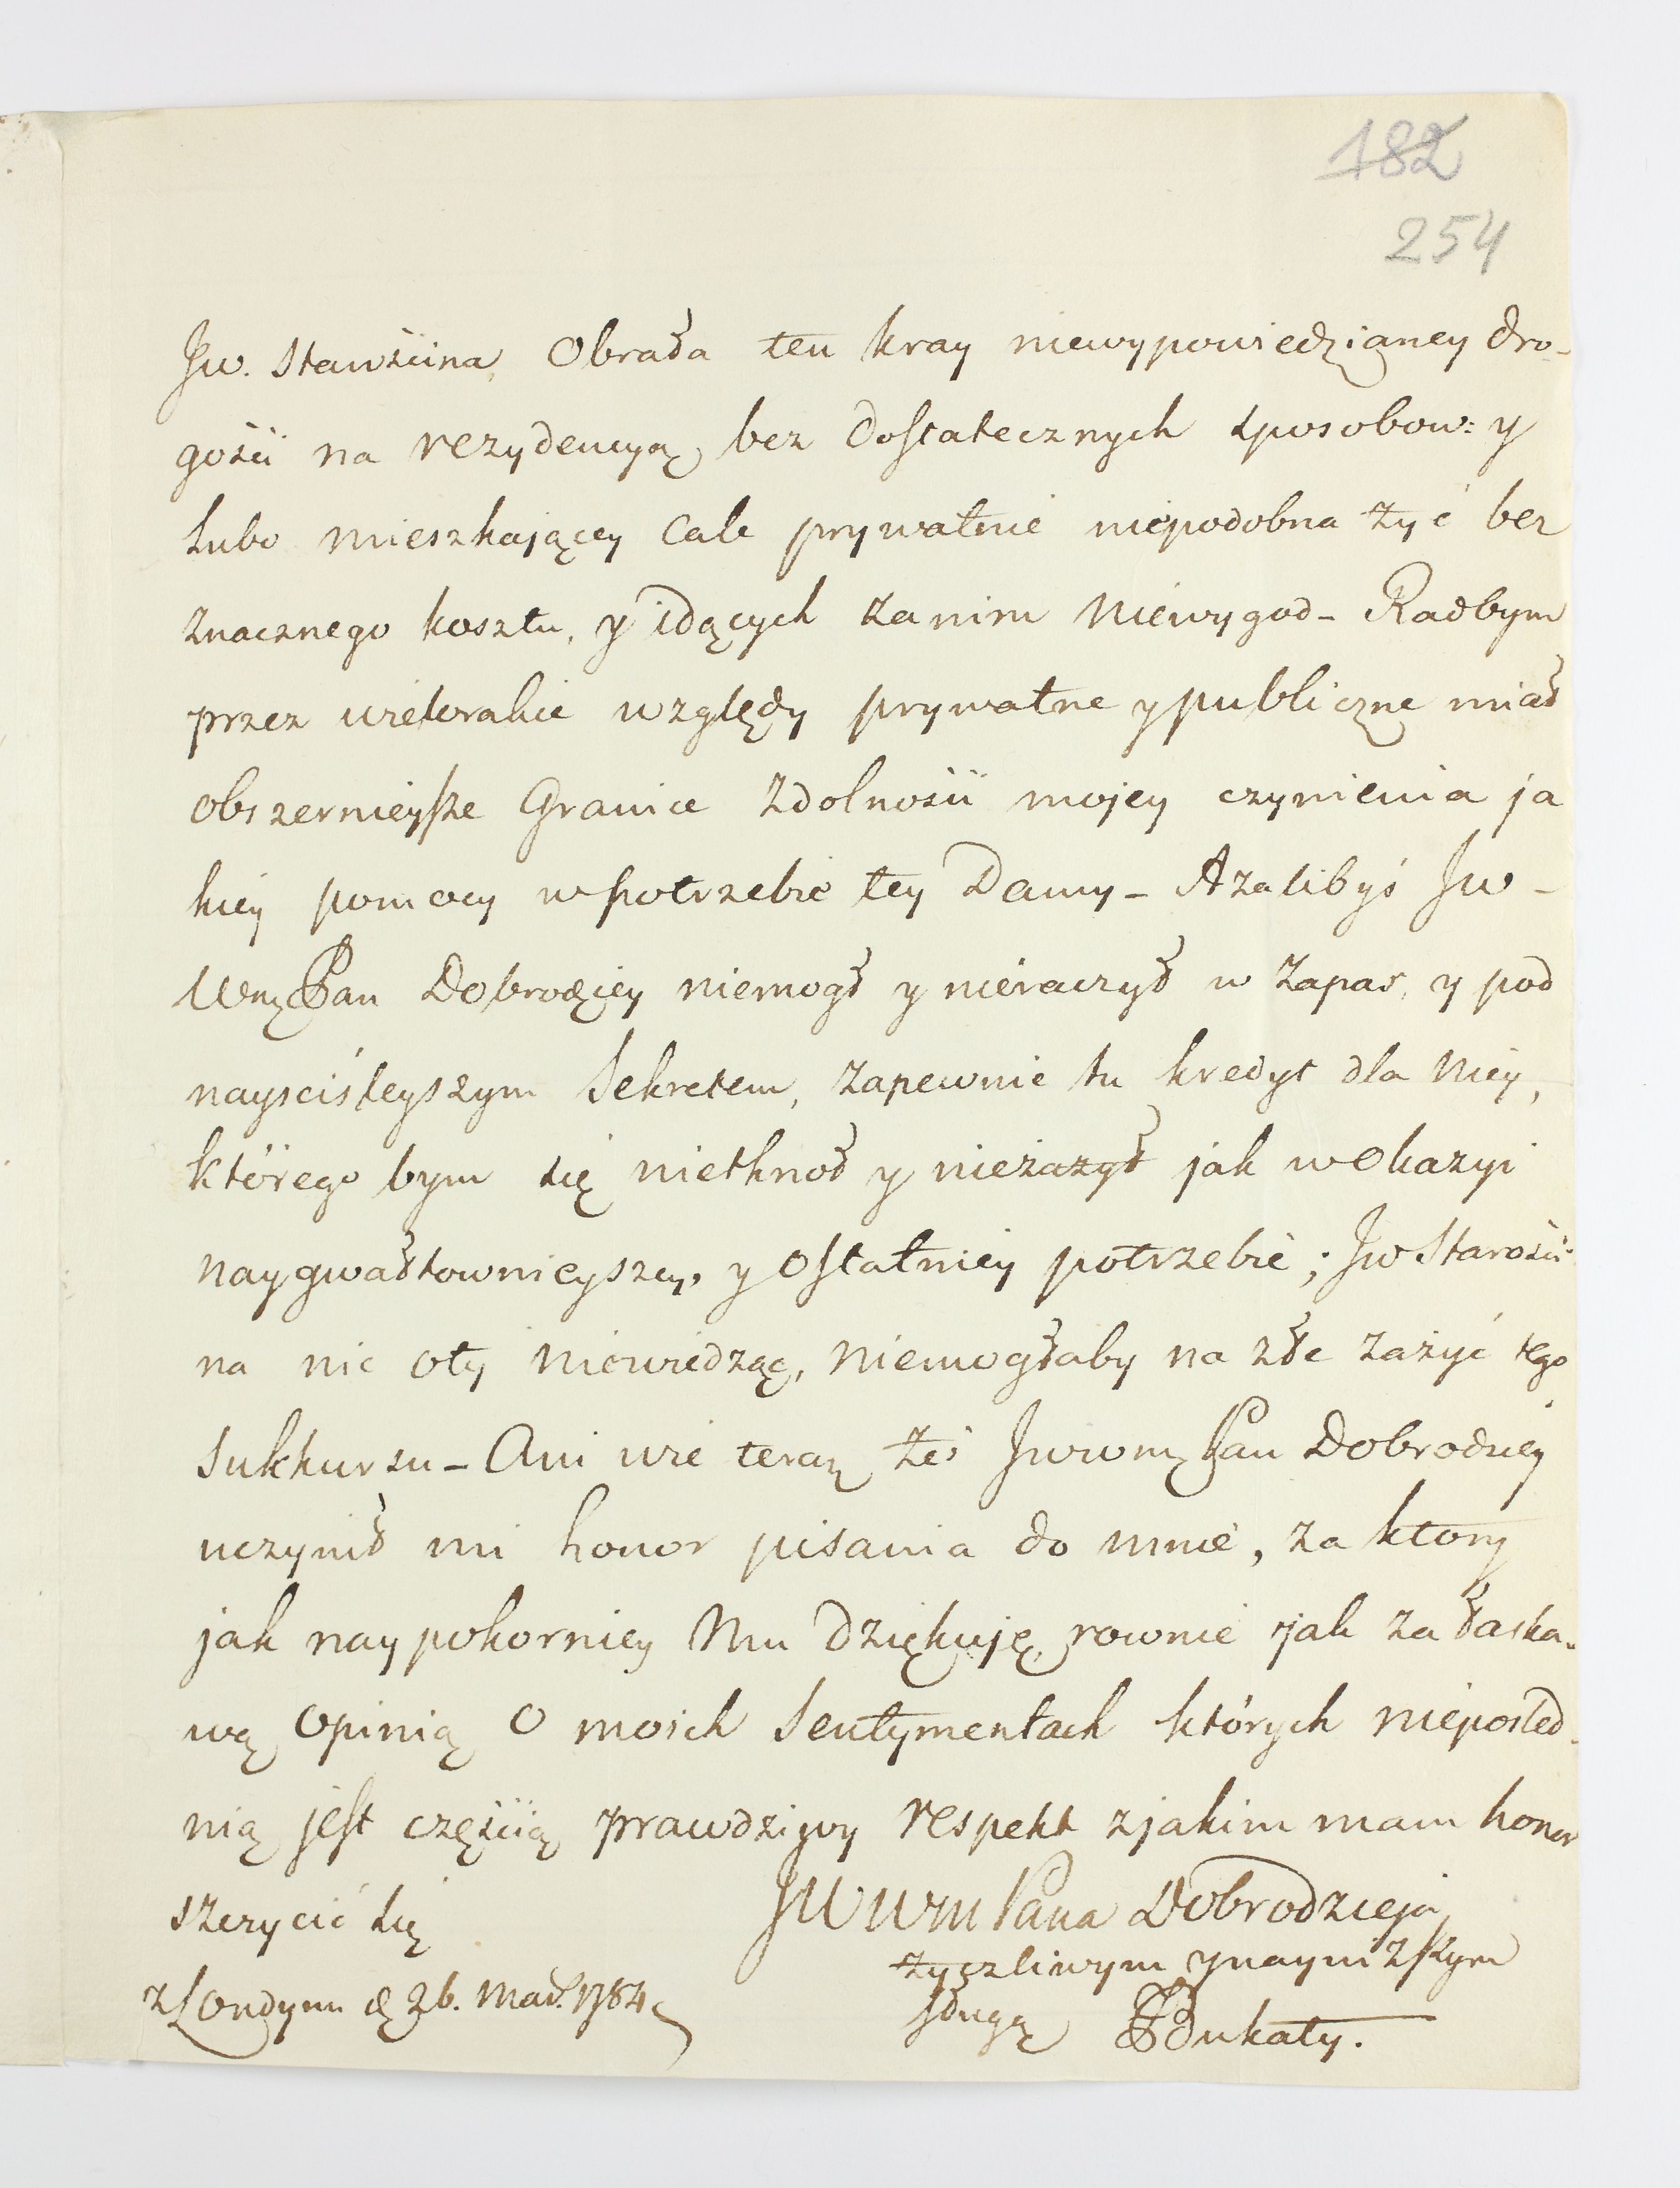 182
254
Jw. Starościna, Obrała ten kray niewypowiedzianey dro-
gości na rezydencyą, bez dostatecznych sposobow: y
lubo mieszkaiącey cale prywatnie niepodobna żyć bez
znacznego kosztu, y idących zanim niewygod - Radbym
przez wielorakie względy prywatne y publiczne miał
obszernieysze Granice zdolności mojey czynienia ja
kiey pomocy w potrzebie tey Damy - Azalibyś Jw -
Wmć Pan Dobrodziey niemogł y nieraczył w zapas, y pod
nayściśleyszym Sekretem, zapewnić tu kredyt dla Niey,
którego bym się nietknoł y niezażył jak w okazyi
naygwałtownieyszey, y ostatniey potrzebie; Jw Starości-
na nic oty niewiedząc, niemogłaby na złe zażyć tego
Sukkursu - Ani wie teraz żeś Jwwmć Pan Dobrodziey
uczynił mi honor pisania do mnie, za ktory
jak naypokorniey Mu dziękuję, rownie jak za łaska-
wą opinią o moich Sentymentach których nieposled-
nią jest częścią prawdziwy respekt z jakim mam honor
szczycić się
JW Wm Pana Dobrodzieja
życzliwym y nayniższym
sługą Bukaty.
z Londynu d 26. Mar. 1784